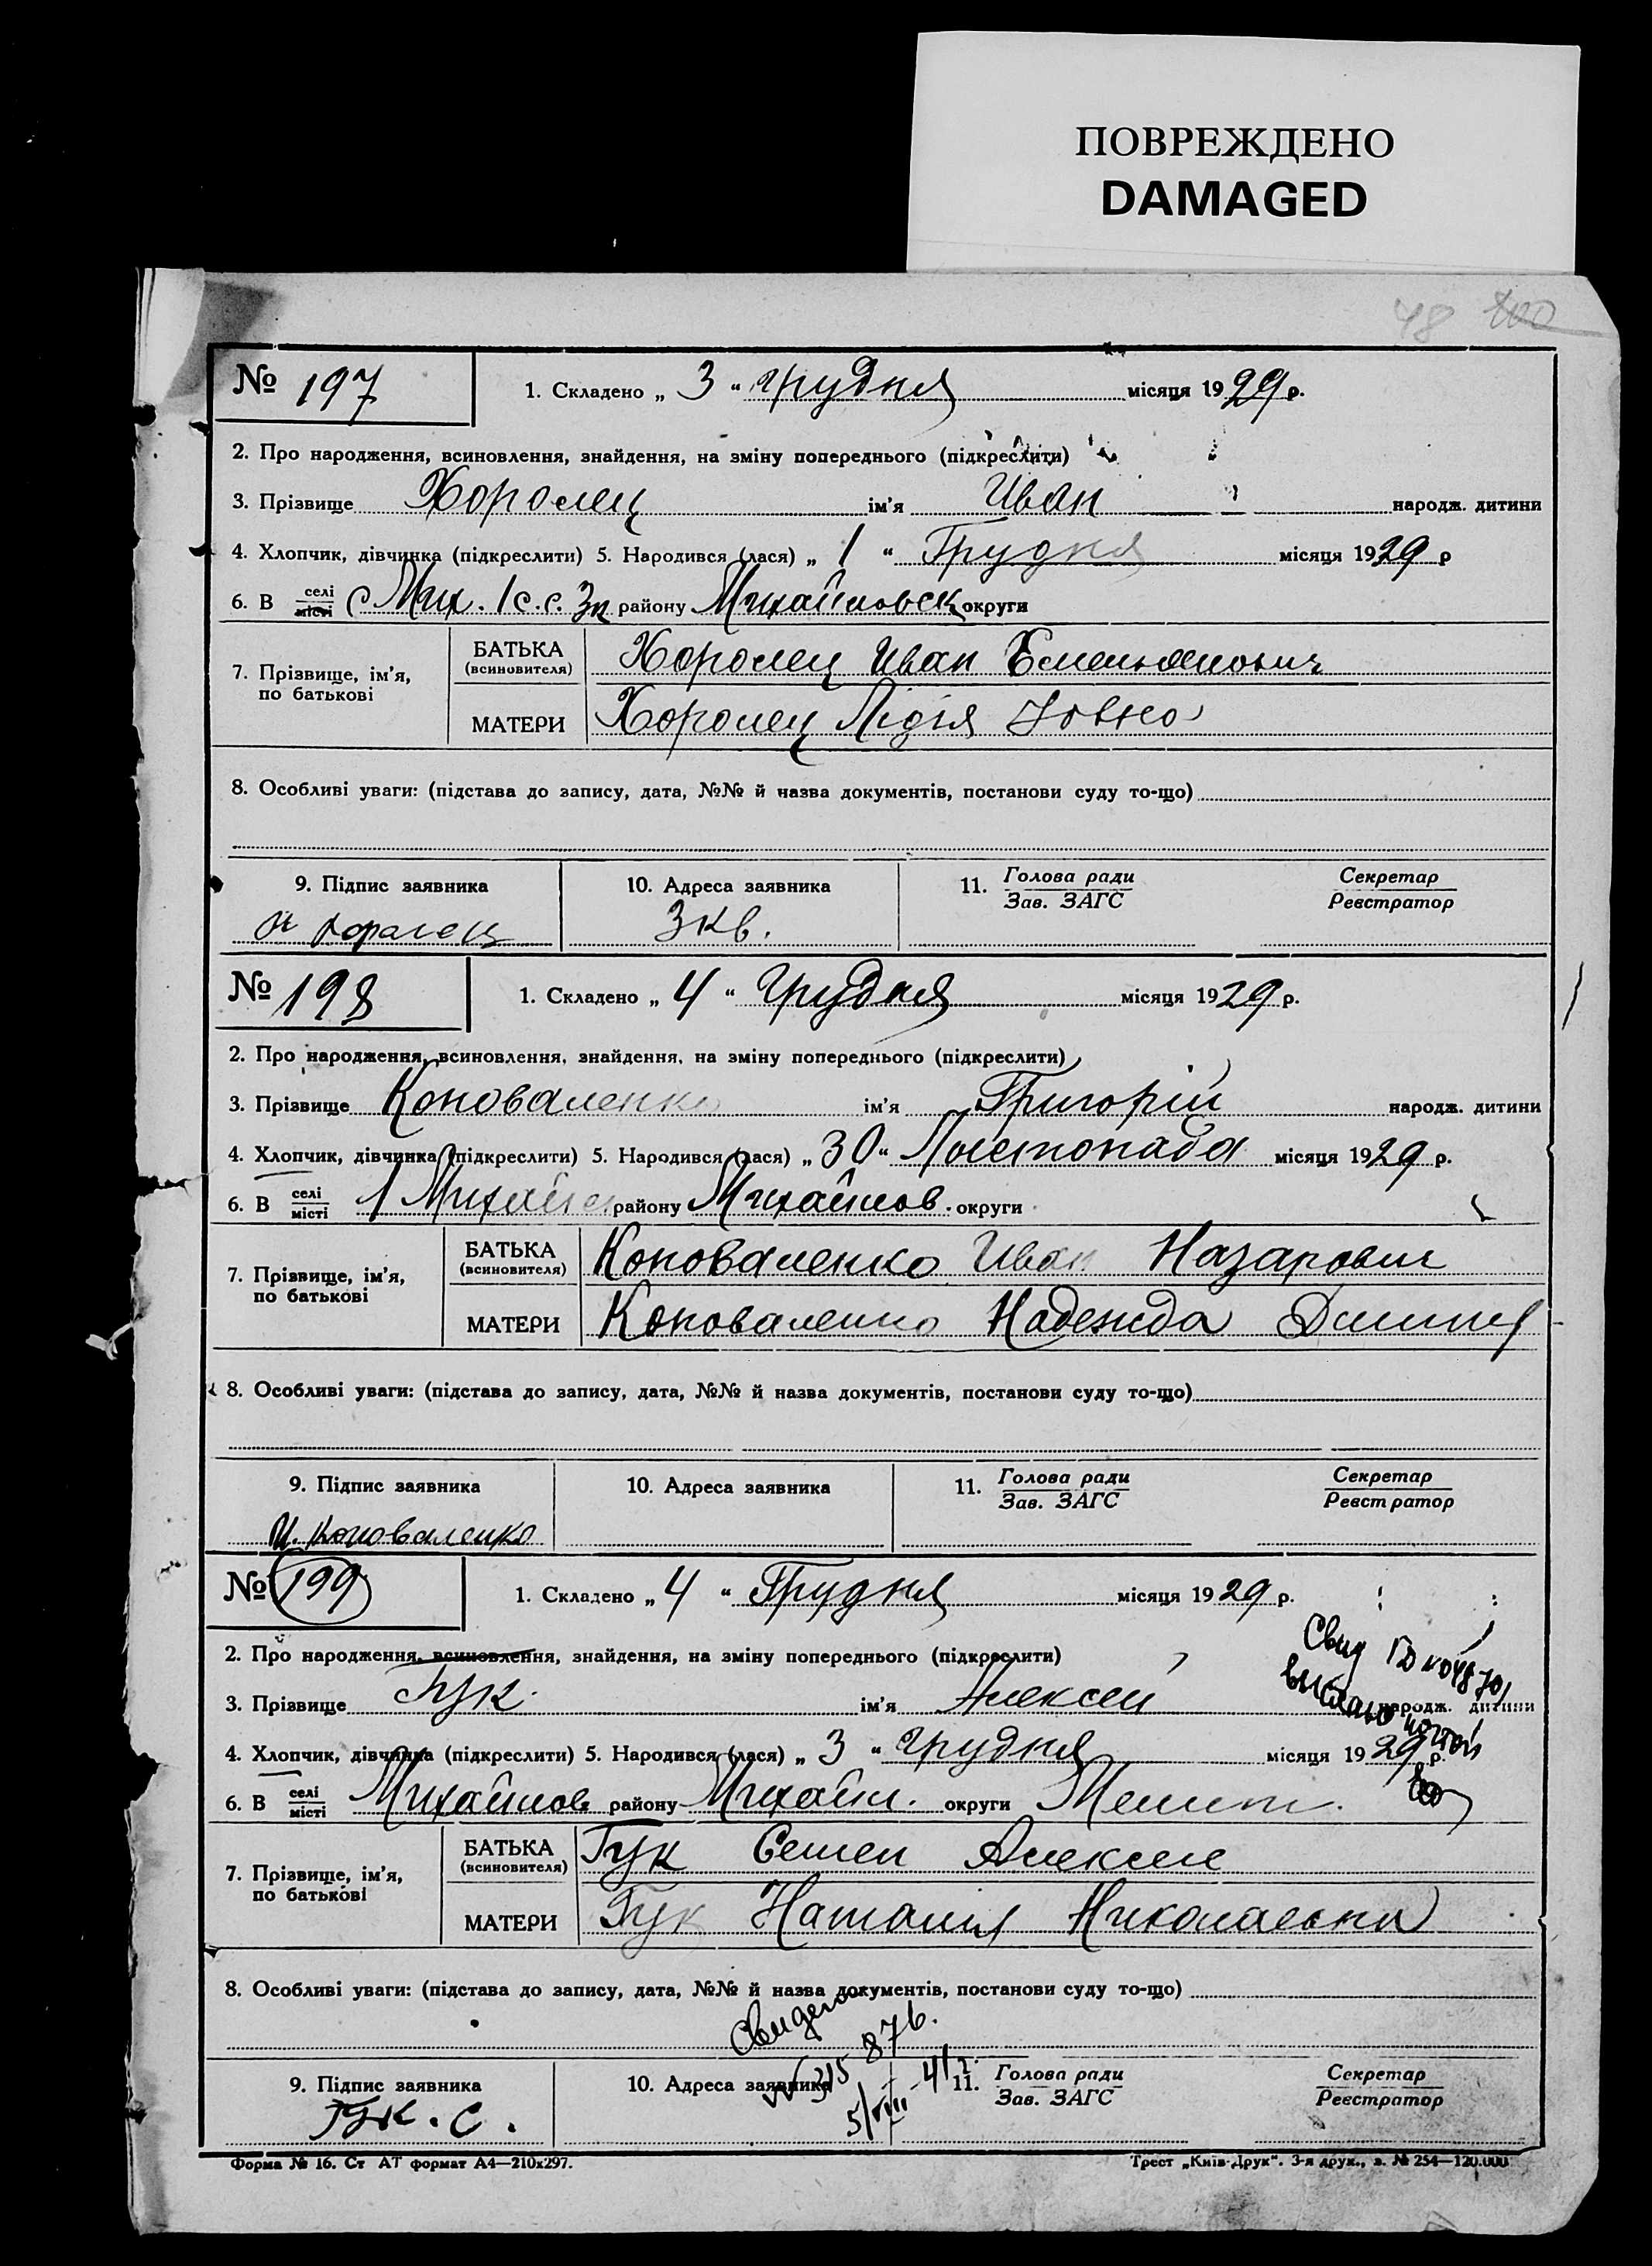 ПОВРЕЖДЕНО
DAMAGED
48 200
№ 197 1. Складено „ 3 “ Грудня місяця 1929 р.
2. Про народження, всиновлення, знайдення, на зміну попереднього (підкреслити)
3. Прізвище Хоролец ім'я Иван народж. дитини
4. Хлопчик, дівчинка (підкреслити) 5. Народився (лася) „ 1 “ Грудня місяця 1929 р
6. В селі місті с Мих. 1 с.с. району Михайловск округи
7. Прізвище, ім'я, по батькові
БАТЬКА (всиновителя) Хоролец Иван Емельянович
МАТЕРИ Хоролец Лідія
8. Особливі уваги: (підстава до запису, дата, №№ й назва документів, постанови суду то-що)
9. Підпис заявника 10. Адреса заявника 11. Голова ради Зав. ЗАГС Секретар Реєстратор
3 кв.
№ 198 1. Складено „ 4 “ Грудня місяця 1929 р.
2. Про народження, всиновлення, знайдення, на зміну попереднього (підкреслити)
3. Прізвище Коноваленко ім'я Григорій народж. дитини
4. Хлопчик, дівчинка (підкреслити) 5. Народився (лася) „ 30 “ Листопада місяця 1929 р.
6. В селі місті 1 Михайл району Михайлов. округи
7. Прізвище, ім'я, по батькові
БАТЬКА (всиновителя) Коноваленко Иван Назарович
МАТЕРИ Коноваленко Надежда
8. Особливі уваги: (підстава до запису, дата, №№ й назва документів, постанови суду то-що)
9. Підпис заявника 10. Адреса заявника 11. Голова ради Зав. ЗАГС Секретар Реєстратор
И. Коноваленко
№ 199 1. Складено „ 4 “ Грудня місяця 1929 р.
2. Про народження, всиновлення, знайдення, на зміну попереднього (підкреслити)
Свид
3. Прізвище Гук ім'я Алексей народж. дитини
4. Хлопчик, дівчинка (підкреслити) 5. Народився (лася) „ 3 “ Грудня місяця 1929 р.
6. В селі місті Михайлов району Михайл. округи Мелит.
7. Прізвище, ім'я, по батькові
БАТЬКА (всиновителя) Гук Семен Алексее
МАТЕРИ Гук Наталия Николаевна
8. Особливі уваги: (підстава до запису, дата, №№ й назва документів, постанови суду то-що)
9. Підпис заявника 10. Адреса заявника 11. Голова ради Зав. ЗАГС Секретар Реєстратор
Гук. С.
Форма № 16. Ст АТ формат А4—210x297. Трест „Київ-Друк“. 3-я друк., з. № 254—120.000